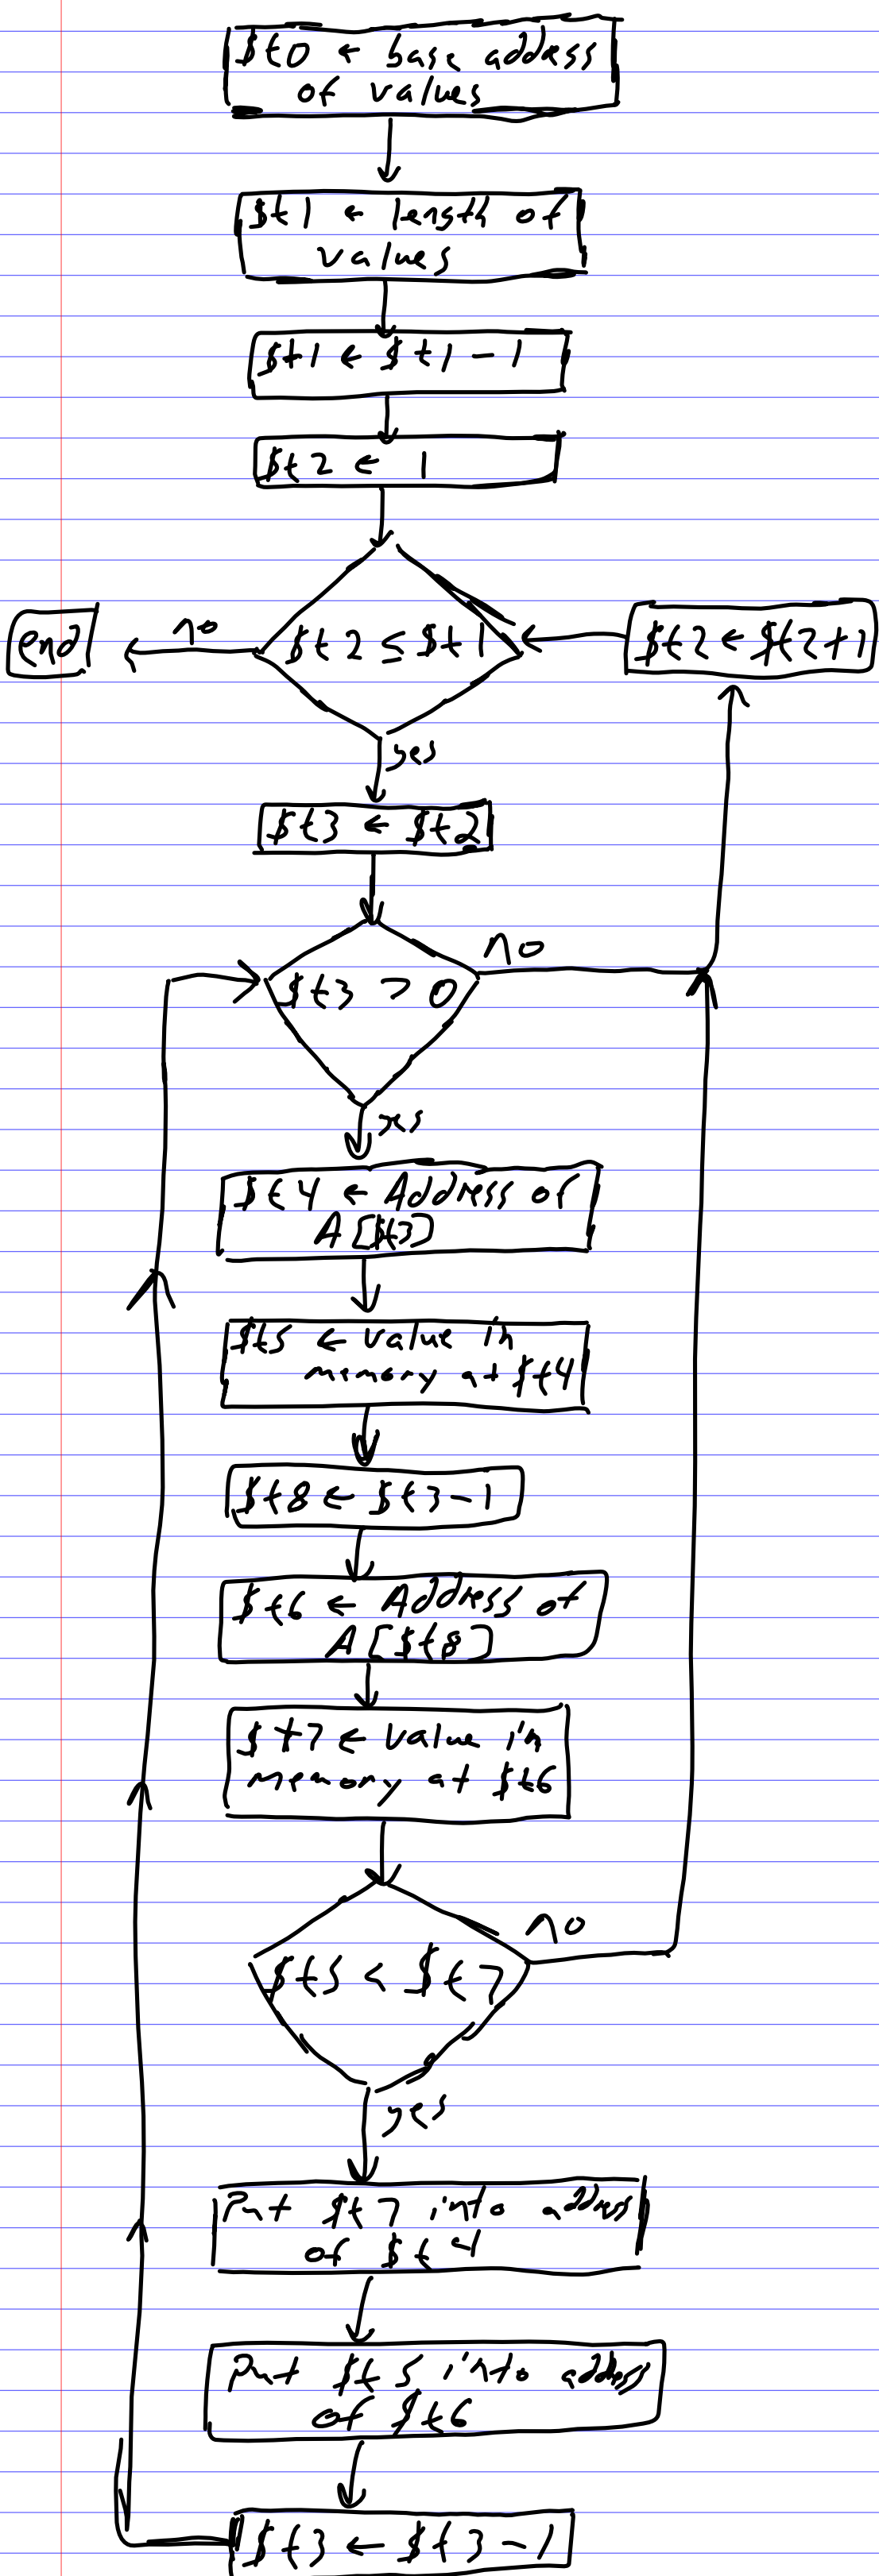 $t0 ← base address
of values
$t1 ← length of
values
$t1 ← $t1 - 1
$t2 ← 1
end
no
$t2 ≤ $t1
$t2 ← $t2 + 1
yes
$t3 ← $t2
no
$t3 > 0
yes
$t4 ← Address of
A[$t3]
$t5 ← value in
memory at $t4
$t8 ← $t3 - 1
$t6 ← Address of
A[$t8]
$t7 ← value in
memory at $t6
no
$t5 < $t7
yes
Put $t7 into address
of $t4
Put $t5 into address
of $t6
$t3 ← $t3 - 1